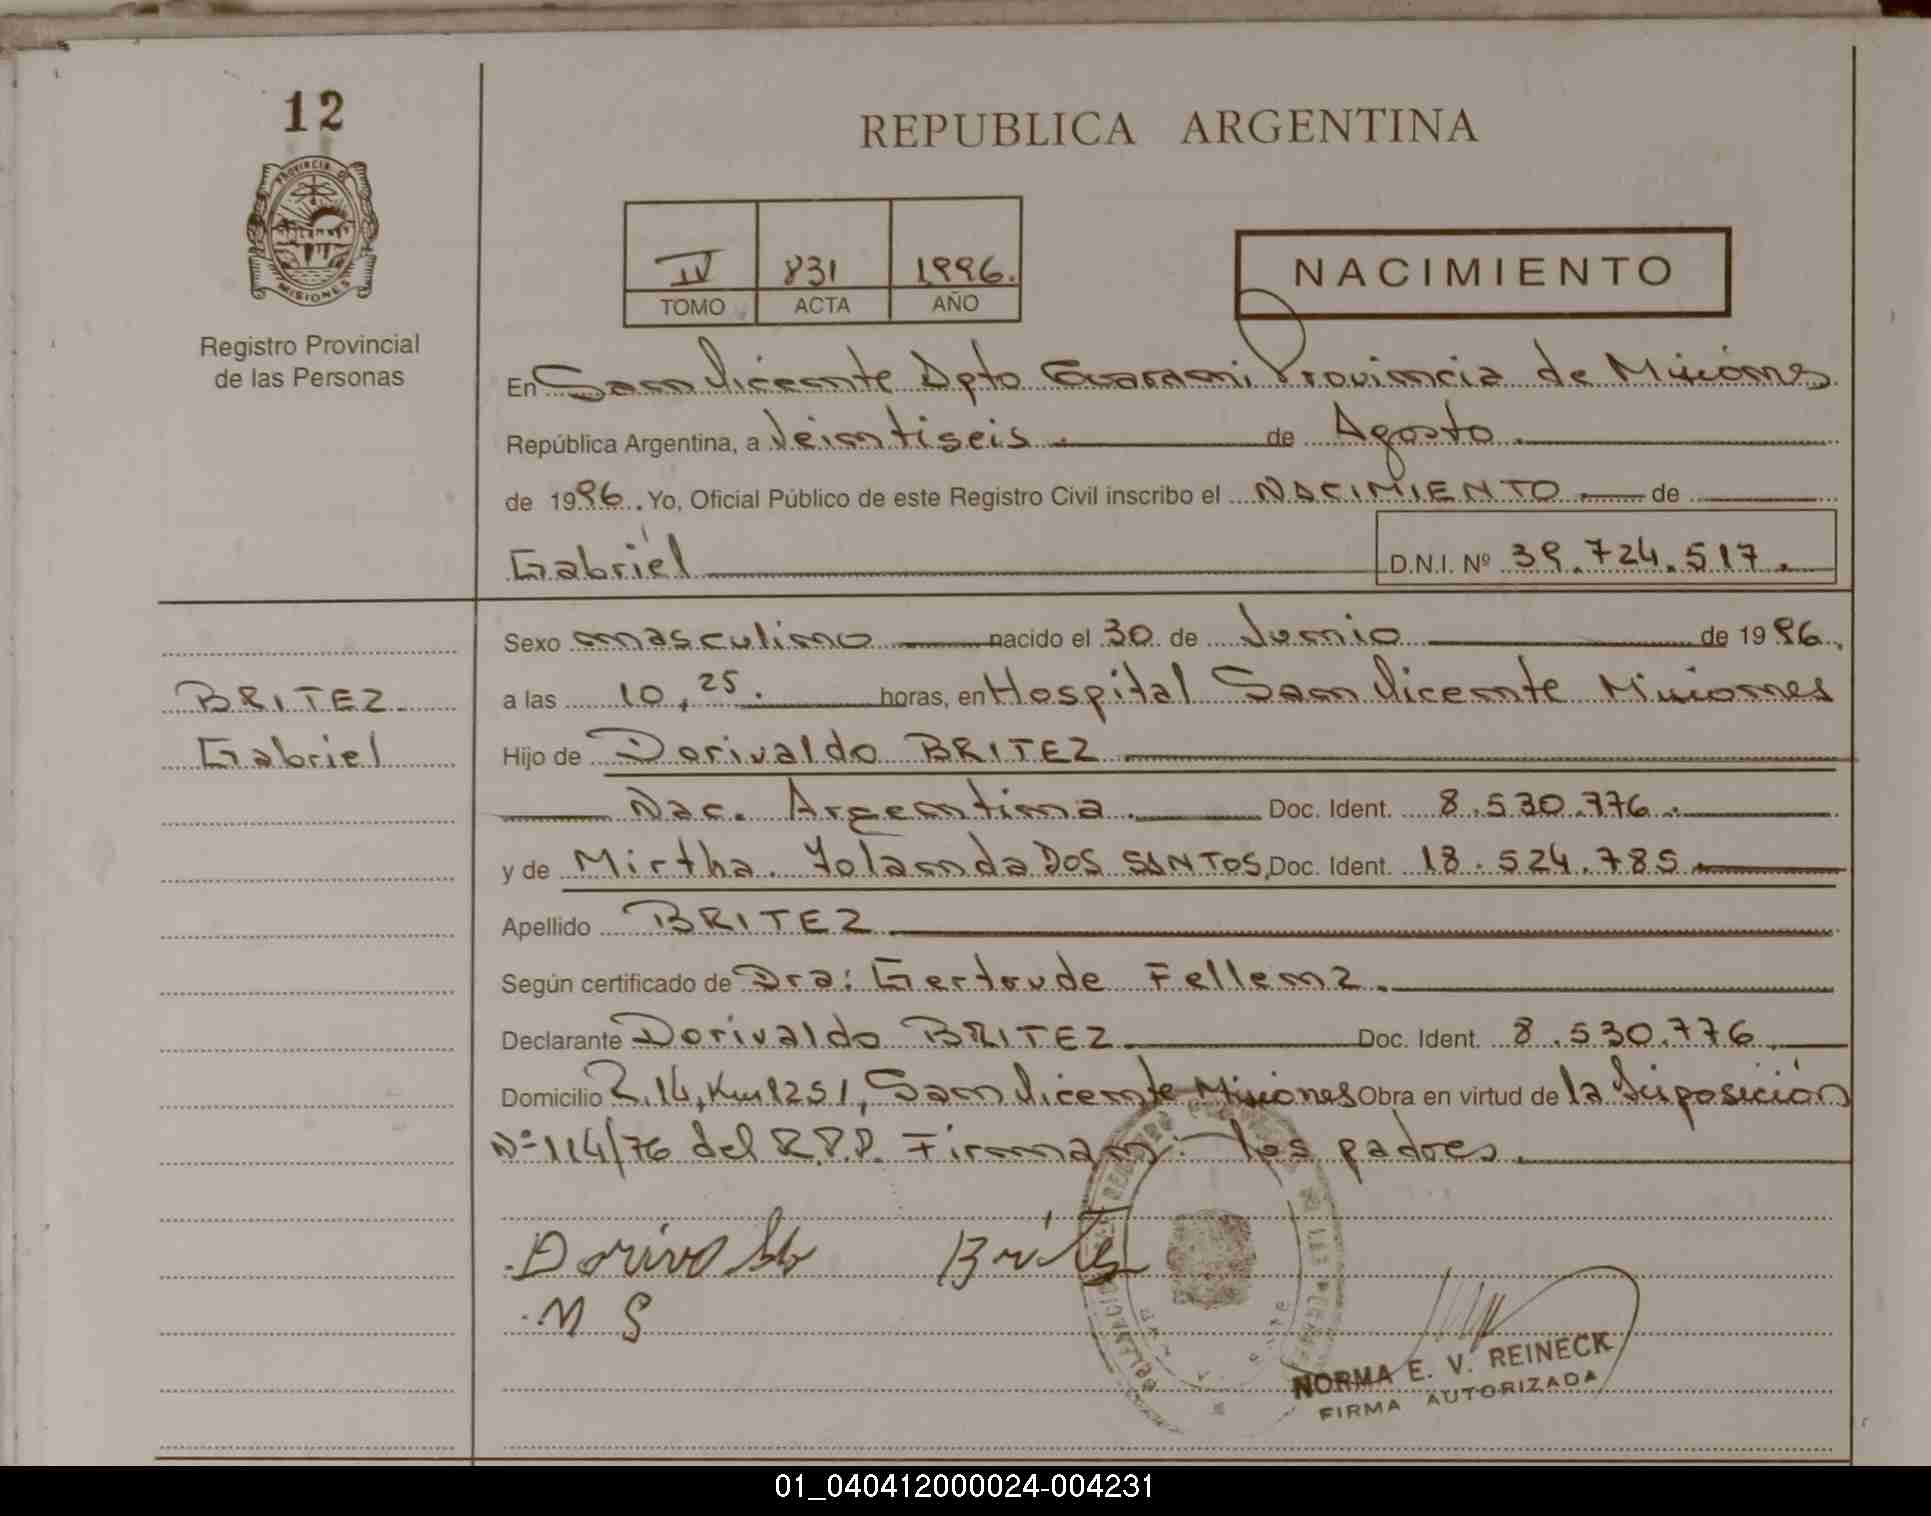 12
PROVINCIA DE
MISIONES
Registro Provincial
de las Personas
REPUBLICA ARGENTINA
IV 831 1996.
TOMO ACTA AÑO
NACIMIENTO
En San Vicente Dpto Guarani, Provincia de Misiones
República Argentina, a Veintiseis. de Agosto.
de 1996. Yo, Oficial Público de este Registro Civil inscribo el NACIMIENTO. de
Gabriel D.N.I. Nº 39.724.517.
Sexo masculino nacido el 30 de Junio de 1996.
BRITEZ
a las 10,25. horas, en Hospital San Vicente Misiones
Gabriel
Hijo de Dorivaldo BRITEZ
Nac. Argentina. Doc. Ident. 8.530.776.
y de Mirtha Yolanda DOS SANTOS, Doc. Ident. 18.524.785
Apellido BRITEZ
Según certificado de Dra: Gertrude Fellenz.
Declarante Dorivaldo BRITEZ Doc. Ident. 8.530.776.
Domicilio R.14, Km 1251, San Vicente Misiones Obra en virtud de la Disposición
Nº 114/76 del R.P.P. Firman: los padres.
Dorivaldo Britez
M S
NORMA E. V. REINECK
FIRMA AUTORIZADA
01_040412000024-004231